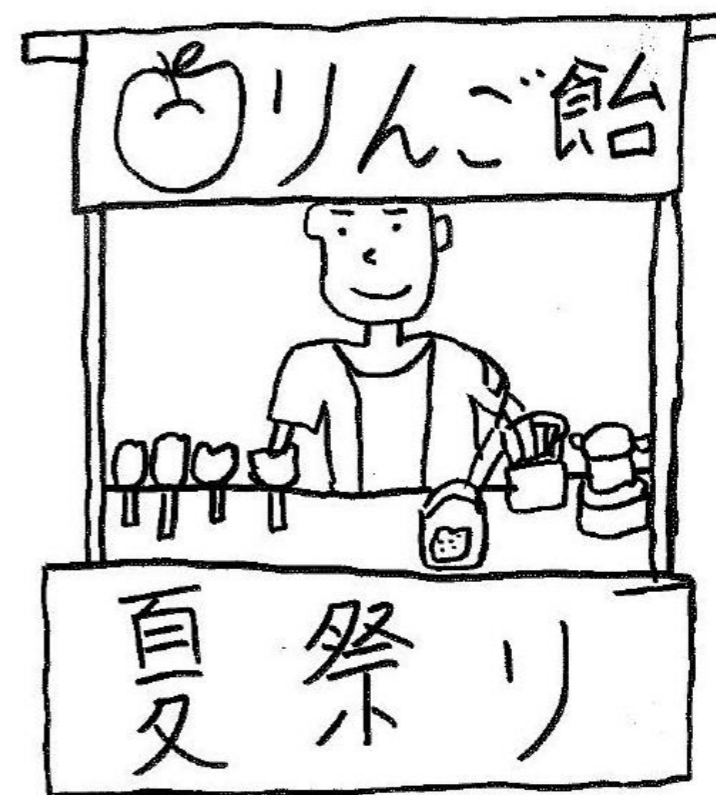 りんご飴
夏祭り